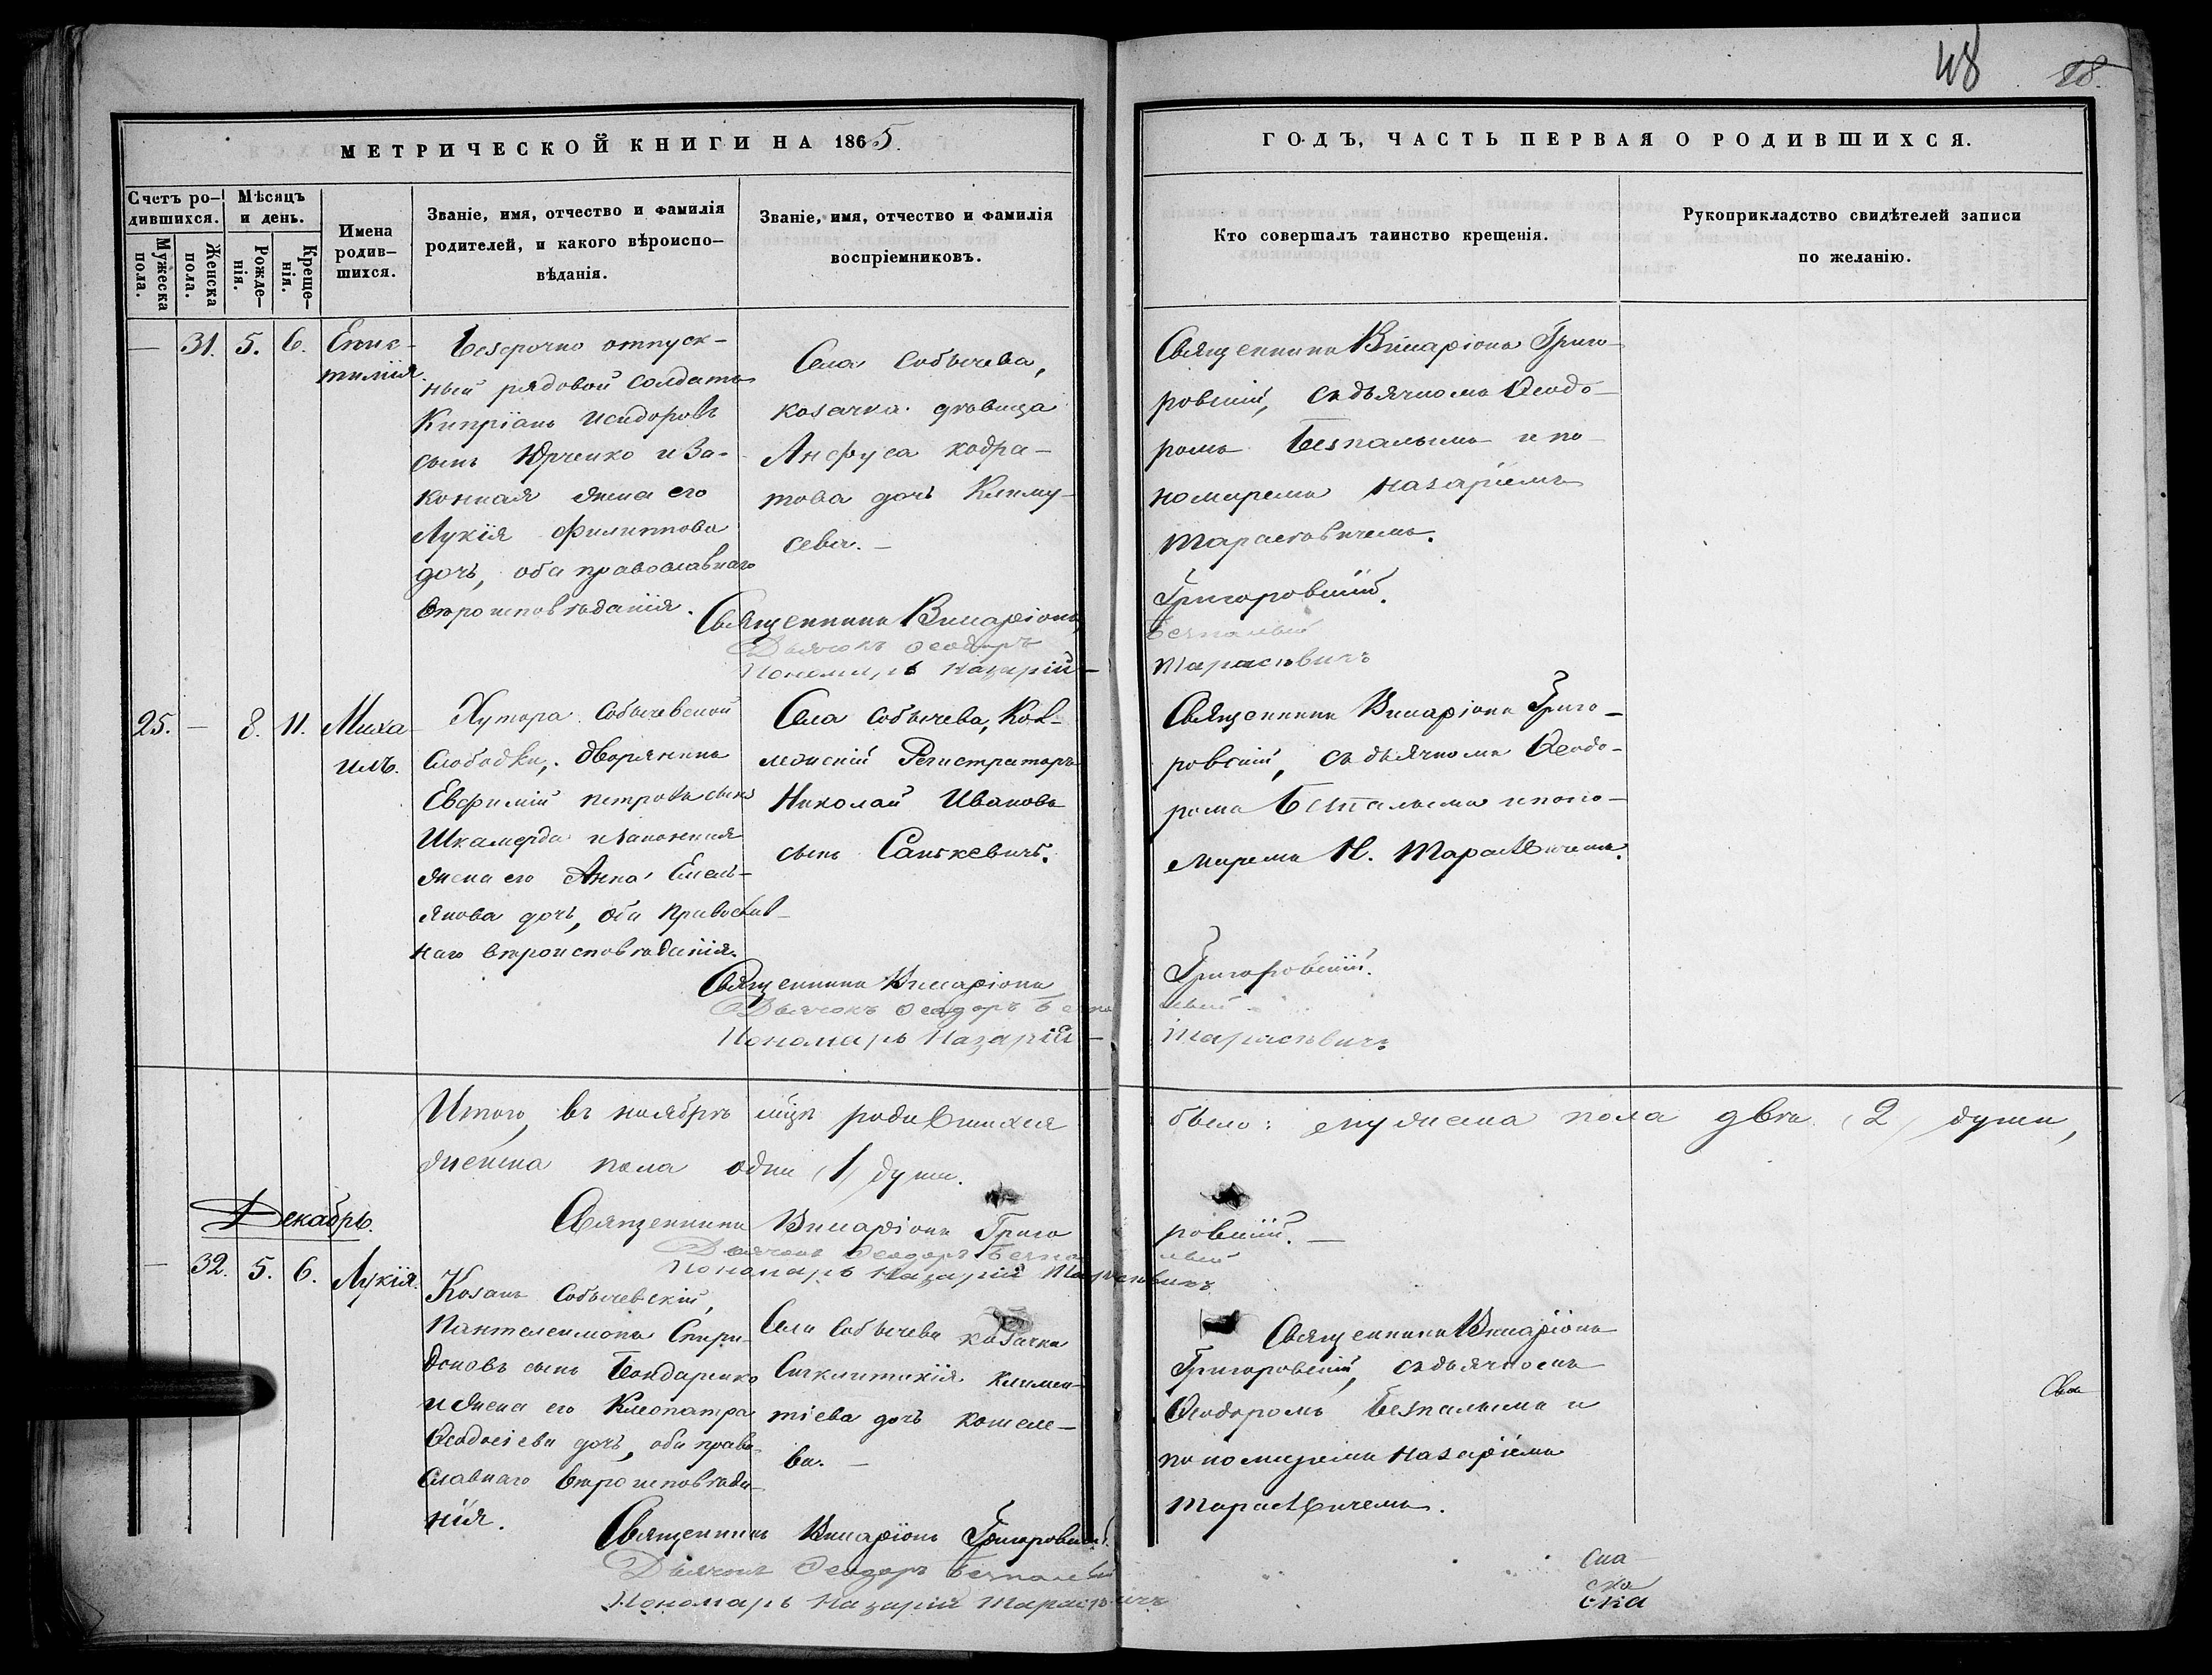 48
МЕТРИЧЕСКОЙ КНИГИ НА 1865.
Счетъ родившихся.
Мужеска пола.
Женска пола.
Мѣсяцъ и день.
Рожденія.
Крещенія.
Имена родившихся.
Званіе, имя, отчество и фамилія
родителей, и какого вѣроиспо-
вѣданія.
Званіе, имя, отчество и фамилія
воспріемниковъ.
ГОДЪ, ЧАСТЬ ПЕРВАЯ О РОДИВШИХСЯ.
Кто совершалъ таинство крещенія.
Рукоприкладство свидѣтелей записи
по желанію.
— 31. 5. 6.
Епис-
тимія
Безсрочно отпуск-
ный рядовой солдатъ
Кипріанъ Исидоровъ
сынъ Юрченко и за-
конная жена его
Лукія Филиппова
дочь, оба православнаго
вѣроисповѣданія.
Села Собычева,
козачка дѣвица
Анфуса Кодра-
това дочь Климу-
сева. —
Священникъ Григо-
ровскій, съ дьячкомъ Ѳеодо-
ромъ Безпалымъ и по-
номаремъ Назаріемъ
Тарасѣвичемъ.
Священникъ Григоровскій.
Дьячокъ Ѳеодоръ Безпалый
Пономарь Назарій — Тарасѣвичъ
25. — 8. 11.
Миха-
илъ.
Хутора Собычевской
Слободки, дворянинъ
Евфимій Петровъ сынъ
Шкамерда и законная
жена его Анна Емель-
янова дочь, оба православ-
наго вѣроисповѣданія.
Села Собычева, Кол-
лежскій Регистраторъ
Николай Ивановъ
сынъ Санькевичъ.
Священникъ Григо-
ровскій, съ дьячкомъ Ѳеодо-
ромъ Безпалымъ и поно-
маремъ Н. Тарасѣвичемъ.
Священникъ Григоровскій.
Дьячокъ Ѳеодоръ Безпалый
Пономарь Назарій — Тарасѣвичъ
Итого въ ноябрѣ мцѣ родившихся было: мужеска пола двѣ (2) души,
женска пола одна (1) душа.
Священникъ Григоровскій. —
Дьячокъ Ѳеодоръ Безпалый
Пономарь Назарій Тарасѣвичъ
Декабрь.
— 32. 5. 6.
Лукія.
Козакъ Собычевскій,
Пантелеимонъ Спири-
доновъ сынъ Бондаренко
и жена его Клеопатра
Ѳеодосіева дочь, оба право-
славнаго вѣроисповѣда-
нія.
Села Собычева козачка
Сигклитикія Климен-
тіева дочь Кошеле-
ва. —
Священникъ
Григоровскій, съ дьячкомъ
Ѳеодоромъ Безпалымъ и
пономаремъ Назаріемъ
Тарасѣвичемъ.
Священникъ Григоровскій.
Дьячокъ Ѳеодоръ Безпалый
Пономарь Назарій Тарасѣвичъ